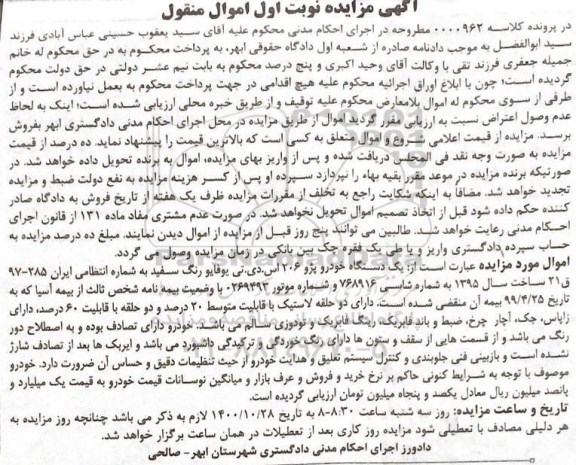 آگهی مزایده نوبت اول اموال منقول
در پرونده کلاسه ۰۰۰۰۹۶۲ مطروحه در اجرای احکام مدنی محکوم علیه آقای سید یعقوب حسینی عباس آبادی فرزند
سید ابوالفضل به موجب دادنامه صادره از شعبه اول دادگاه حقوقی ابهر، به پرداخت محکوم به در حق محکوم له خانم
جمیله جعفری فرزند تقی با وکالت آقای وحید اکبری و پنج درصد محکوم به بابت نیم عشر دولتی در حق دولت محکوم
گردیده است؛ چون با ابلاغ اوراق اجرائیه محکوم علیه هیچ اقدامی در جهت پرداخت محکوم به بعمل نیاورده است و از
طرفی از سوی محکوم له اموال بلامعارض محکوم علیه توقیف و از طریق خبره محلی ارزیابی شده است؛ اینک به لحاظ
عدم وصول اعتراض نسبت به ارزیابی مقرر گردید اموال از طریق مزایده در محل اجرای احکام مدنی دادگستری ابهر بفروش
برسد. مزایده از قیمت اعلامی شروع و اموال متعلق به کسی است که بالاترین قیمت را پیشنهاد نماید. ده درصد از قیمت
مزایده به صورت وجه نقد فی المجلس دریافت شده و پس از واریز بهای مزایده، اموال به برنده تحویل داده خواهد شد. در
صورتیکه برنده مزایده در موعد مقرر بقیه بهاء را نپردازد سپرده او پس از کسر هزینه مزایده به نفع دولت ضبط و مزایده
تجدید خواهد شد. مضافا به اینکه شکایت راجع به تخلف از مقررات مزایده ظرف یک هفته از تاریخ فروش به دادگاه صادر
کننده حکم داده شود قبل از اتخاذ تصمیم اموال تحویل نخواهد شد. در صورت عدم مشتری مفاد ماده ۱۳۱ از قانون اجرای
احکام مدنی رعایت خواهد شد. طالبین می توانند پنج روز قبل از مزایده از اموال دیدن نمایند. مبلغ ده درصد مزایده به
حساب سپرده دادگستری واریز و یا طی یک فقره چک بین بانکی در زمان مزایده وصول می گردد.
اموال مورد مزایده عبارت است از: یک دستگاه خودرو پژو ۲۰۶ اس.دی.تی یوفایو رنگ سفید به شماره انتظامی ایران ۲۸۵-۹۷
ق۲۱ ساخت سال ۱۳۹۵ به شماره شاسی ۷۶۸۹۱۶ و شماره موتور ۰۲۶۹۴۹۳ با وضعیت بیمه نامه شخص ثالث از بیمه آسیا که به
تاریخ ۹۹/۴/۲۵ بیمه آن منقضی شده است. دارای دو حلقه لاستیک با قابلیت متوسط ۲۰ درصد و دو حلقه با قابلیت ۶۰ درصد، دارای
زاپاس، جک، آچار چرخ، ضبط و باند فابریک، رینگ فابریک و تودوزی سالم می باشد. خودرو دارای تصادف بوده و به اصطلاح دور
رنگ می باشد و از قسمت هایی از سقف و ستون ها دارای رنگ خوردگی و ترکیدگی داشبورد می باشد و ایربک ها بعد از تصادف شارژ
نشده است و بازبینی فنی جلوبندی و کنترل سیستم تعلیق و هدایت خودرو از حیث تنظیمات دقیق و حساس آن ضرورت دارد. خودرو
موصوف با توجه به شرایط کنونی حاکم بر نرخ خرید و فروش و عرف بازار و میانگین نوسانات قیمت خودرو به قیمت یک میلیارد و
پانصد میلیون ریال معادل یکصد و پنجاه میلیون تومان ارزیابی گردیده است.
تاریخ و ساعت مزایده: روز سه شنبه ساعت ۸:۳۰-۸ به تاریخ ۱۴۰۰/۱۰/۲۸ لازم به ذکر می باشد چنانچه روز مزایده به
هر دلیلی مصادف با تعطیلی شود مزایده روز کاری بعد از تعطیلات در همان ساعت برگزار خواهد شد.
دادورز اجرای احکام مدنی دادگستری شهرستان ابهر- صالحی